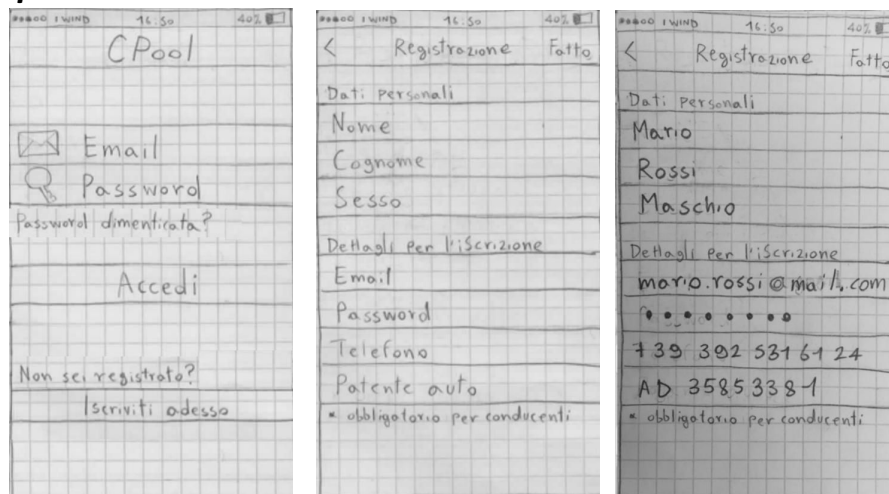 I WIND 16:50 40%
CPool
Email
Password
Password dimenticata?
Accedi
Non sei registrato?
Iscriviti adesso
I WIND 16:50 40%
< Registrazione Fatto
Dati personali
Nome
Cognome
Sesso
Dettagli per l'iscrizione
Email
Password
Telefono
Patente auto
* obbligatorio per conducenti
I WIND 16:50 40%
< Registrazione Fatto
Dati personali
Mario
Rossi
Maschio
Dettagli per l'iscrizione
mario.rossi@mail.com
••••••••
+39 392 531 61 24
AD 3585338-1
* obbligatorio per conducenti